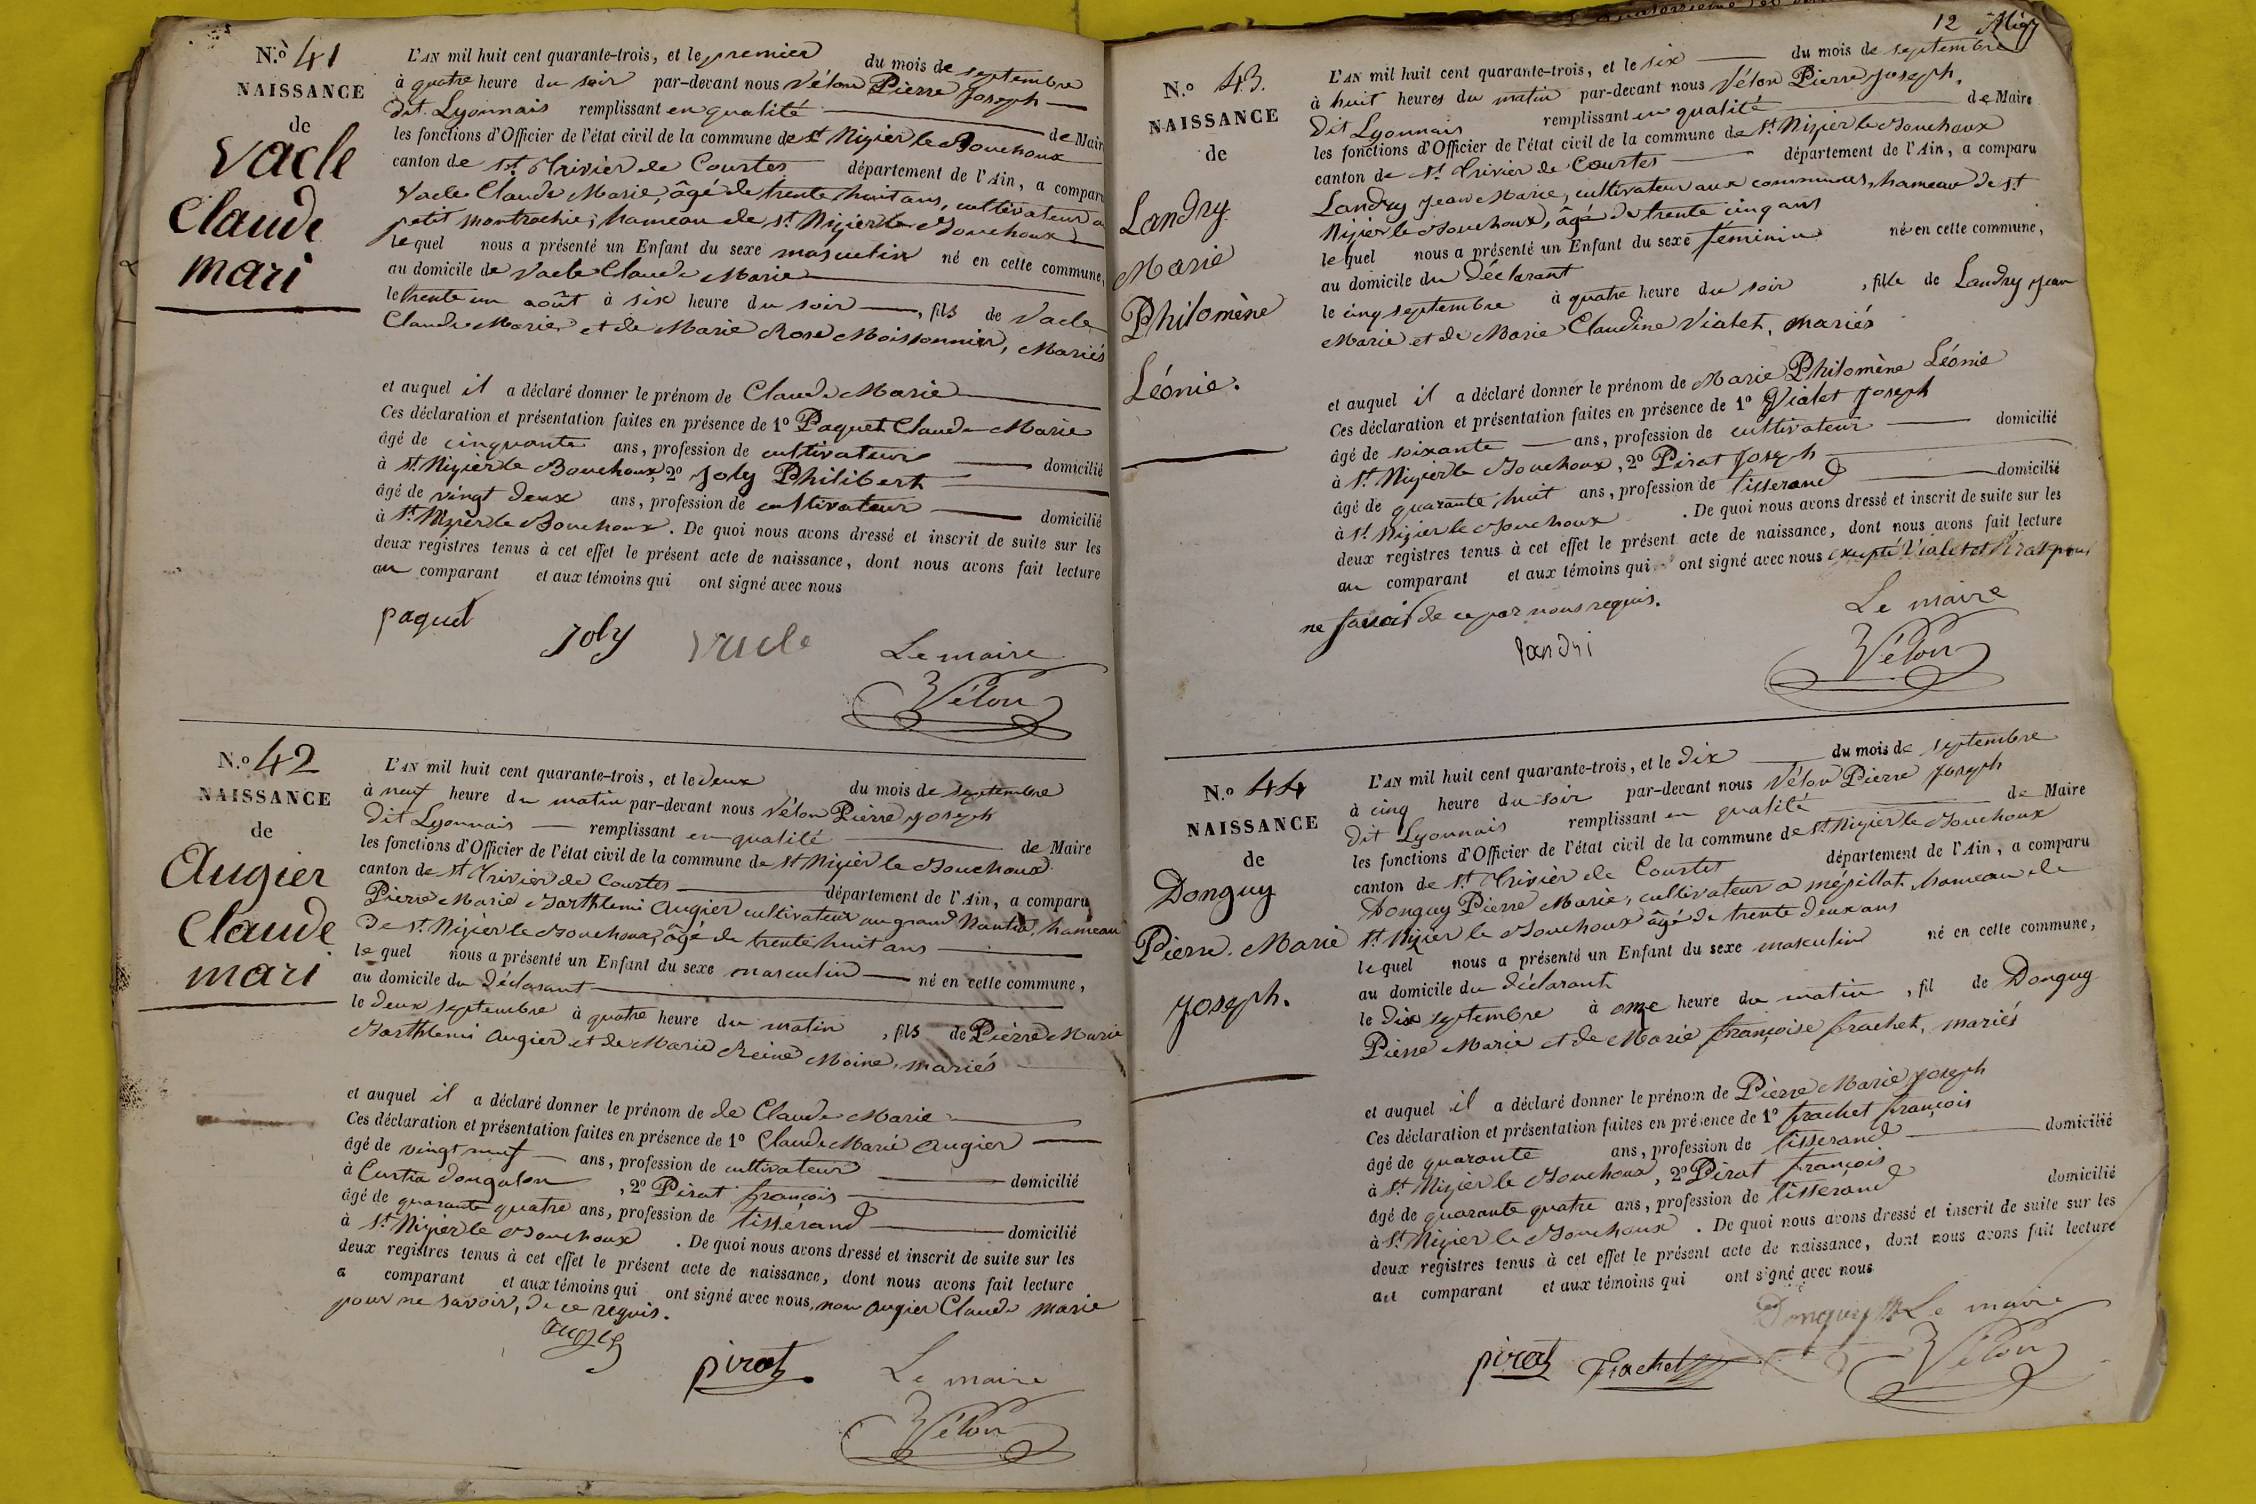 N.º 41
NAISSANCE
de
Vacle
Claude
mari
L'AN mil huit cent quarante-trois, et le premier du mois de septembre
à quatre heure du soir par-devant nous Vélon Pierre Joseph
dit Lyonnais remplissant en qualité de Maire
les fonctions d'Officier de l'état civil de la commune de St Nizier le Bouchoux
canton de St. Trivier de Courtes département de l'Ain, a comparu
Vacle Claude Marie, âgé de trente huit ans, cultivateur a
petit montrachie, hameau de St. Nizier le Bouchoux
lequel nous a présenté un Enfant du sexe masculin né en cette commune,
au domicile de Vacle Claude Marie
le trente un août à six heure du soir, fils de Vacle
Claude Marie et de Marie Rose Moissonnier, Mariés
et auquel il a déclaré donner le prénom de Claude Marie
Ces déclaration et présentation faites en présence de 1º Paquet Claude Marie
âgé de cinquante ans, profession de cultivateur domicilié
à St. Nizier le Bouchoux, 2º Joly Philibert
âgé de vingt deux ans, profession de cultivateur domicilié
à St. Nizier le Bouchoux. De quoi nous avons dressé et inscrit de suite sur les
deux registres tenus à cet effet le présent acte de naissance, dont nous avons fait lecture
au comparant et aux témoins qui ont signé avec nous
paquet
Joly
Vacle
Le maire
Vélon
N.º 42
NAISSANCE
de
Augier
Claude
mari
L'AN mil huit cent quarante-trois, et le deux du mois de septembre
à neuf heure du matin par-devant nous Vélon Pierre Joseph
dit Lyonnais remplissant en qualité de Maire
les fonctions d'Officier de l'état civil de la commune de St Nizier le Bouchoux
canton de St Trivier de Courtes département de l'Ain, a comparu
Pierre Marie Barthlemi Augier cultivateur au grand, hameau
de St. Nizier le Bouchoux, âgé de trente huit ans
lequel nous a présenté un Enfant du sexe masculin né en cette commune,
au domicile du déclarant
le deux septembre à quatre heure du matin, fils de Pierre Marie
Barthlemi Augier et de Marie Reine Moine, mariés
et auquel il a déclaré donner le prénom de de Claude Marie
Ces déclaration et présentation faites en présence de 1º Claude Marie Augier
âgé de vingt neuf ans, profession de cultivateur domicilié
à Curtia dongalon, 2º Pirat françois
âgé de quarante quatre ans, profession de tissérand domicilié
à St. Nizier le Bouchoux. De quoi nous avons dressé et inscrit de suite sur les
deux registres tenus à cet effet le présent acte de naissance, dont nous avons fait lecture
a comparant et aux témoins qui ont signé avec nous, non Augier Claude Marie
pour ne savoir, de ce requis.
augier
pirat
Le maire
Vélon
12
N.º 43.
NAISSANCE
de
Landry
Marie
Philomène
Léonie.
L'AN mil huit cent quarante-trois, et le six du mois de septembre
à huit heures du matin par-devant nous Vélon Pierre Joseph,
dit Lyonnais remplissant en qualité de Maire
les fonctions d'Officier de l'état civil de la commune de St. Nizier le Bouchoux
canton de St. Trivier de Courtes département de l'Ain, a comparu
Landry Jean Marie, cultivateur aux communes, hameau de St.
Nizier le Bouchoux, âgé de trente cinq ans
lequel nous a présenté un Enfant du sexe féminin né en cette commune,
au domicile du Déclarant
le cinq septembre à quatre heure du soir, fille de Landry Jean
Marie et de Marie Claudine Vialet, mariés
et auquel il a déclaré donner le prénom de Marie Philomène Léonie
Ces déclaration et présentation faites en présence de 1º Vialet Joseph
âgé de soixante ans, profession de cultivateur domicilié
à St. Nizier le Bouchoux, 2º Pirat Joseph
âgé de quarante huit ans, profession de tisserand domicilié
à St. Nizier le Bouchoux. De quoi nous avons dressé et inscrit de suite sur les
deux registres tenus à cet effet le présent acte de naissance, dont nous avons fait lecture
au comparant et aux témoins qui ont signé avec nous excepté Vialet et Pirat pour
ne savoir de ce par nous requis.
landri
Le maire
Vélon
N.º 44
NAISSANCE
de
Donguy
Pierre. Marie
Joseph.
L'AN mil huit cent quarante-trois, et le dix du mois de septembre
à cinq heure du soir par-devant nous Vélon Pierre Joseph
dit Lyonnais remplissant en qualité de Maire
les fonctions d'Officier de l'état civil de la commune de St Nizier le Bouchoux
canton de St. Trivier de Courtes département de l'Ain, a comparu
Donguy Pierre Marie, cultivateur a mépillat hameau de
St. Nizier le Bouchoux âgé de trente deux ans
lequel nous a présenté un Enfant du sexe masculin né en cette commune,
au domicile du déclarant
le dix septembre à onze heure du matin, fil de Donguy
Pierre Marie et de Marie françoise frachet, mariés
et auquel il a déclaré donner le prénom de Pierre Marie Joseph
Ces déclaration et présentation faites en présence de 1º frachet françois
âgé de quarante ans, profession de tisserand domicilié
à St. Nizier le Bouchoux, 2º Pirat françois
âgé de quarante quatre ans, profession de tisserand domicilié
à St. Nizier le Bouchoux. De quoi nous avons dressé et inscrit de suite sur les
deux registres tenus à cet effet le présent acte de naissance, dont nous avons fait lecture
au comparant et aux témoins qui ont signé avec nous
Donguy
Le maire
pirat
Frachet
Vélon